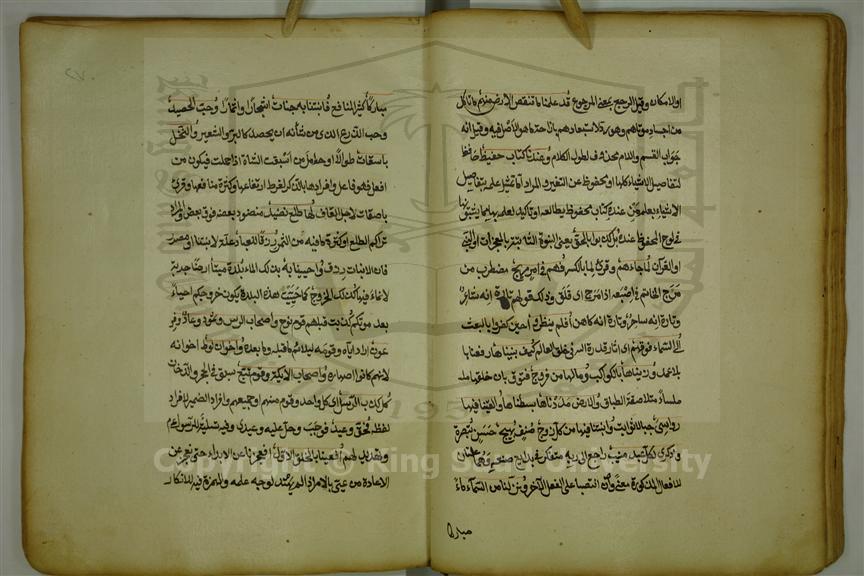 او الامكان وقيل الرجع بمعنى المرجوع قد علمنا ما تنقص الارض منهم ما تاكل
من اجساد موتاهم وهو رد لاستبعادهم بازاحة ما هو الاصل فيه وقيل انه
جواب القسم واللام محذوف لطول الكلام وعندنا كتاب حفيظ حافظ
لتفاصيل الاشياء كلها او محفوظ عن التغيير والمراد اما تمثيل علمه بتفاصيل
الاشياء بعلم من عنده كتاب محفوظ يطالعه او تاكيد لعلمه بها بثبوتها
في لوح المحفوظ عنده بل كذبوا بالحق يعنى النبوة الثابتة بالمعجزات او النبي
او القرآن لما جاءهم وقرئ لما بالكسر فهم في امر مريج مضطرب من
مرج الخاتم في اصبعه اذا مرج اى قلق وذلك قولهم تارة انه شاعر
وتارة انه ساحر وتارة انه كاهن أفلم ينظروا حين كفروا بالبعث
الى السماء فوقهم اى اثار قدرة الله في خلق العالم كيف بنيناها رفعناها
بلا عمد وزيناها بالكواكب وما لها من فروج فتوق بان خلقها
ملساء متلاصقة الطباق والارض مددناها بسطناها والقينا فيها
رواسى جبالا ثوابت وانبتنا فيها من كل زوج صنف بهيج حسن تبصرة
وذكرى لكل عبد منيب راجع الى ربه متفكر في بدايع صنعه وهما علتان
للافعال المذكورة معنى وان انتصبا على الفعل الاخير ونزلنا من السماء ماء
مباركا
مباركا كثير المنافع فانبتنا به جنات اشجارا واثمارا وحب الحصيد
وحب الزرع الذى من شأنه ان يحصد كالبر والشعير والنخل
باسقات طوالا او حوامل من ابسقت الشاة اذا حملت فيكون من
افعل فهو فاعل وافرادها بالذكر لفرط ارتفاعها وكثرة منافعها وقرئ
باصقات لاجل القاف لها طلع نضيد منضود بعضه فوق بعض والمراد
تراكم الطلع او كثرة ما فيه من الثمر رزقا للعباد علة لانبتنا او مصدر
فان الانبات رزق واحيينا به بذلك الماء بلدة ميتا ارضا جدبة
لا نماء فيها كذلك الخروج كما حييت هذه البلدة يكون خروجكم احياء
بعد موتكم كذبت قبلهم قوم نوح واصحاب الرس وثمود وعاد وفر
عون اراد اياه وقومه ليلائم ما قبله وما بعده واخوان لوط اخوانه
لانهم كانوا اصهاره واصحاب الايكة وقوم تبع سبق في الحجر والدخان
كل كذب الرسل اى كل واحد او قوم منهم او جميعهم وافراد الضمير لافراد
لفظه فحق وعيد فوجب وحل عليه وعيدى وفيه تسلية للرسول عم
وتهديد لهم أفعيينا بالخلق الاول افعجزنا عن الابداء حتى نعجز عن
الاعادة من عيى بالامر اذا لم يهتد لوجه عمله والهمزة فيه للانكار
Copyright © King Saud University